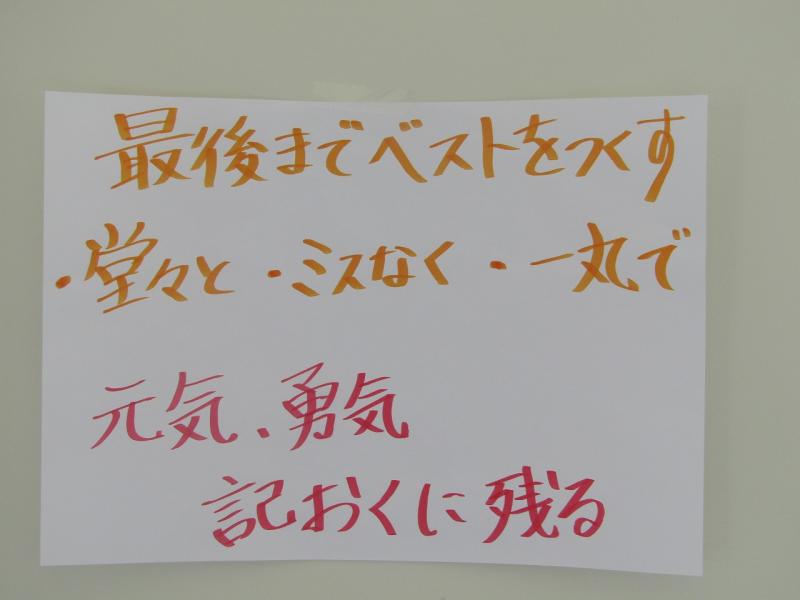 最後までベストをつくす
・堂々と ・ミスなく ・一丸で
元気、勇気
記おくに残る